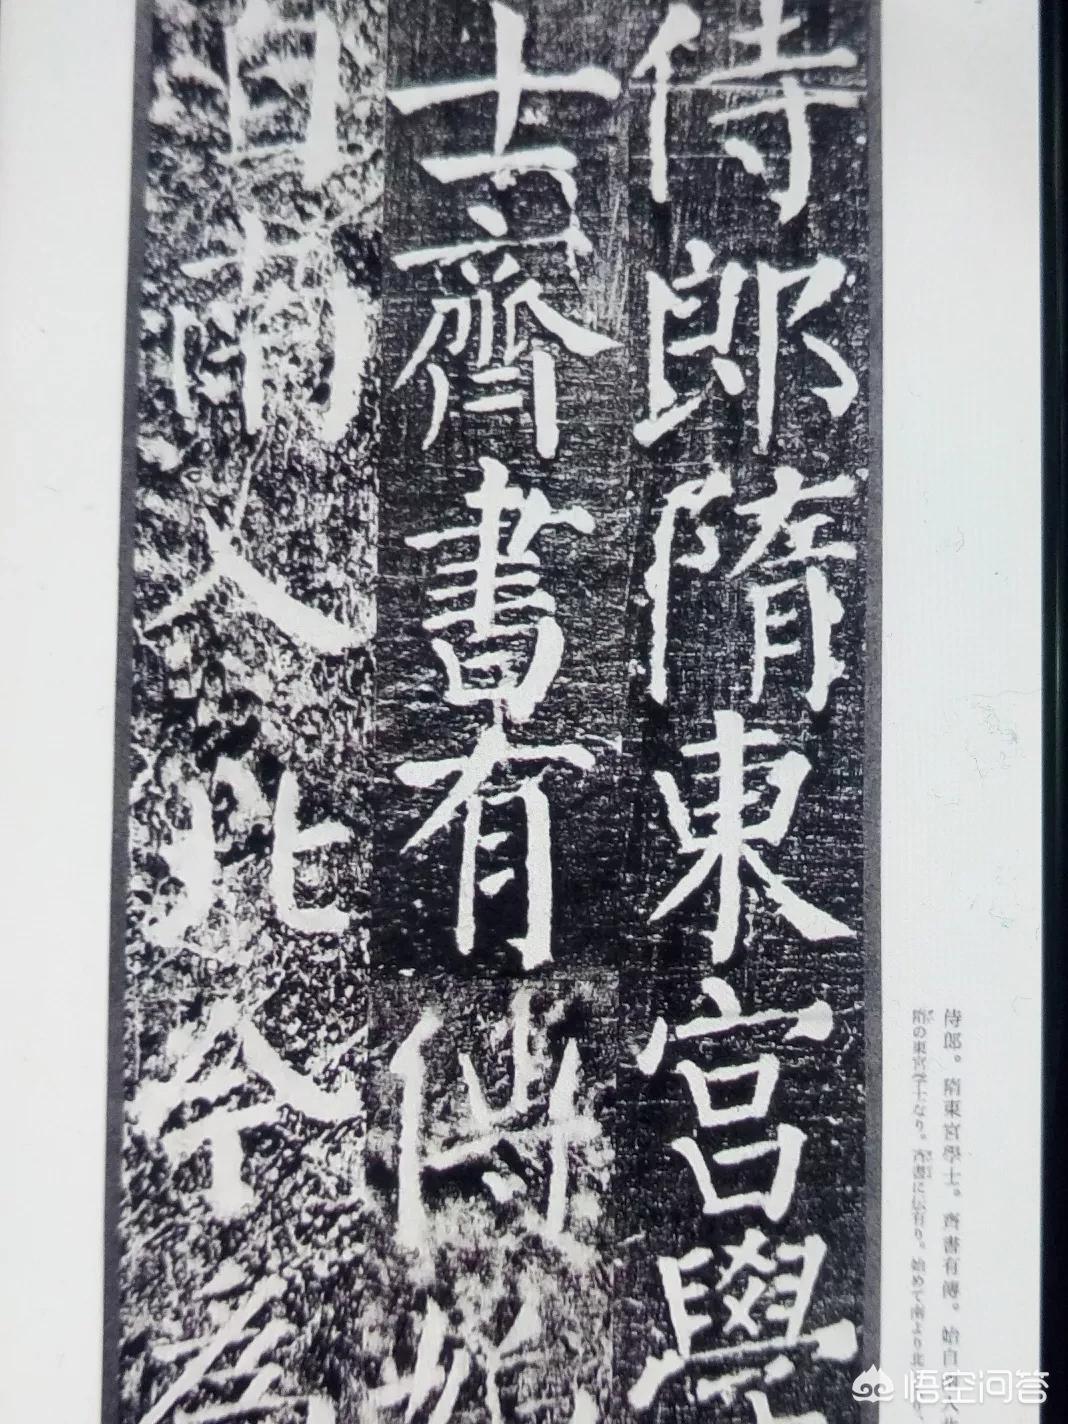 侍郎隋東宮學
士齊書有傳始
自南入北今為
侍郎。隋東宮學士。齊書有傳。始自南入北
隋の東宮学士なり。斉書に伝有り。始めて南より北
悟空问答